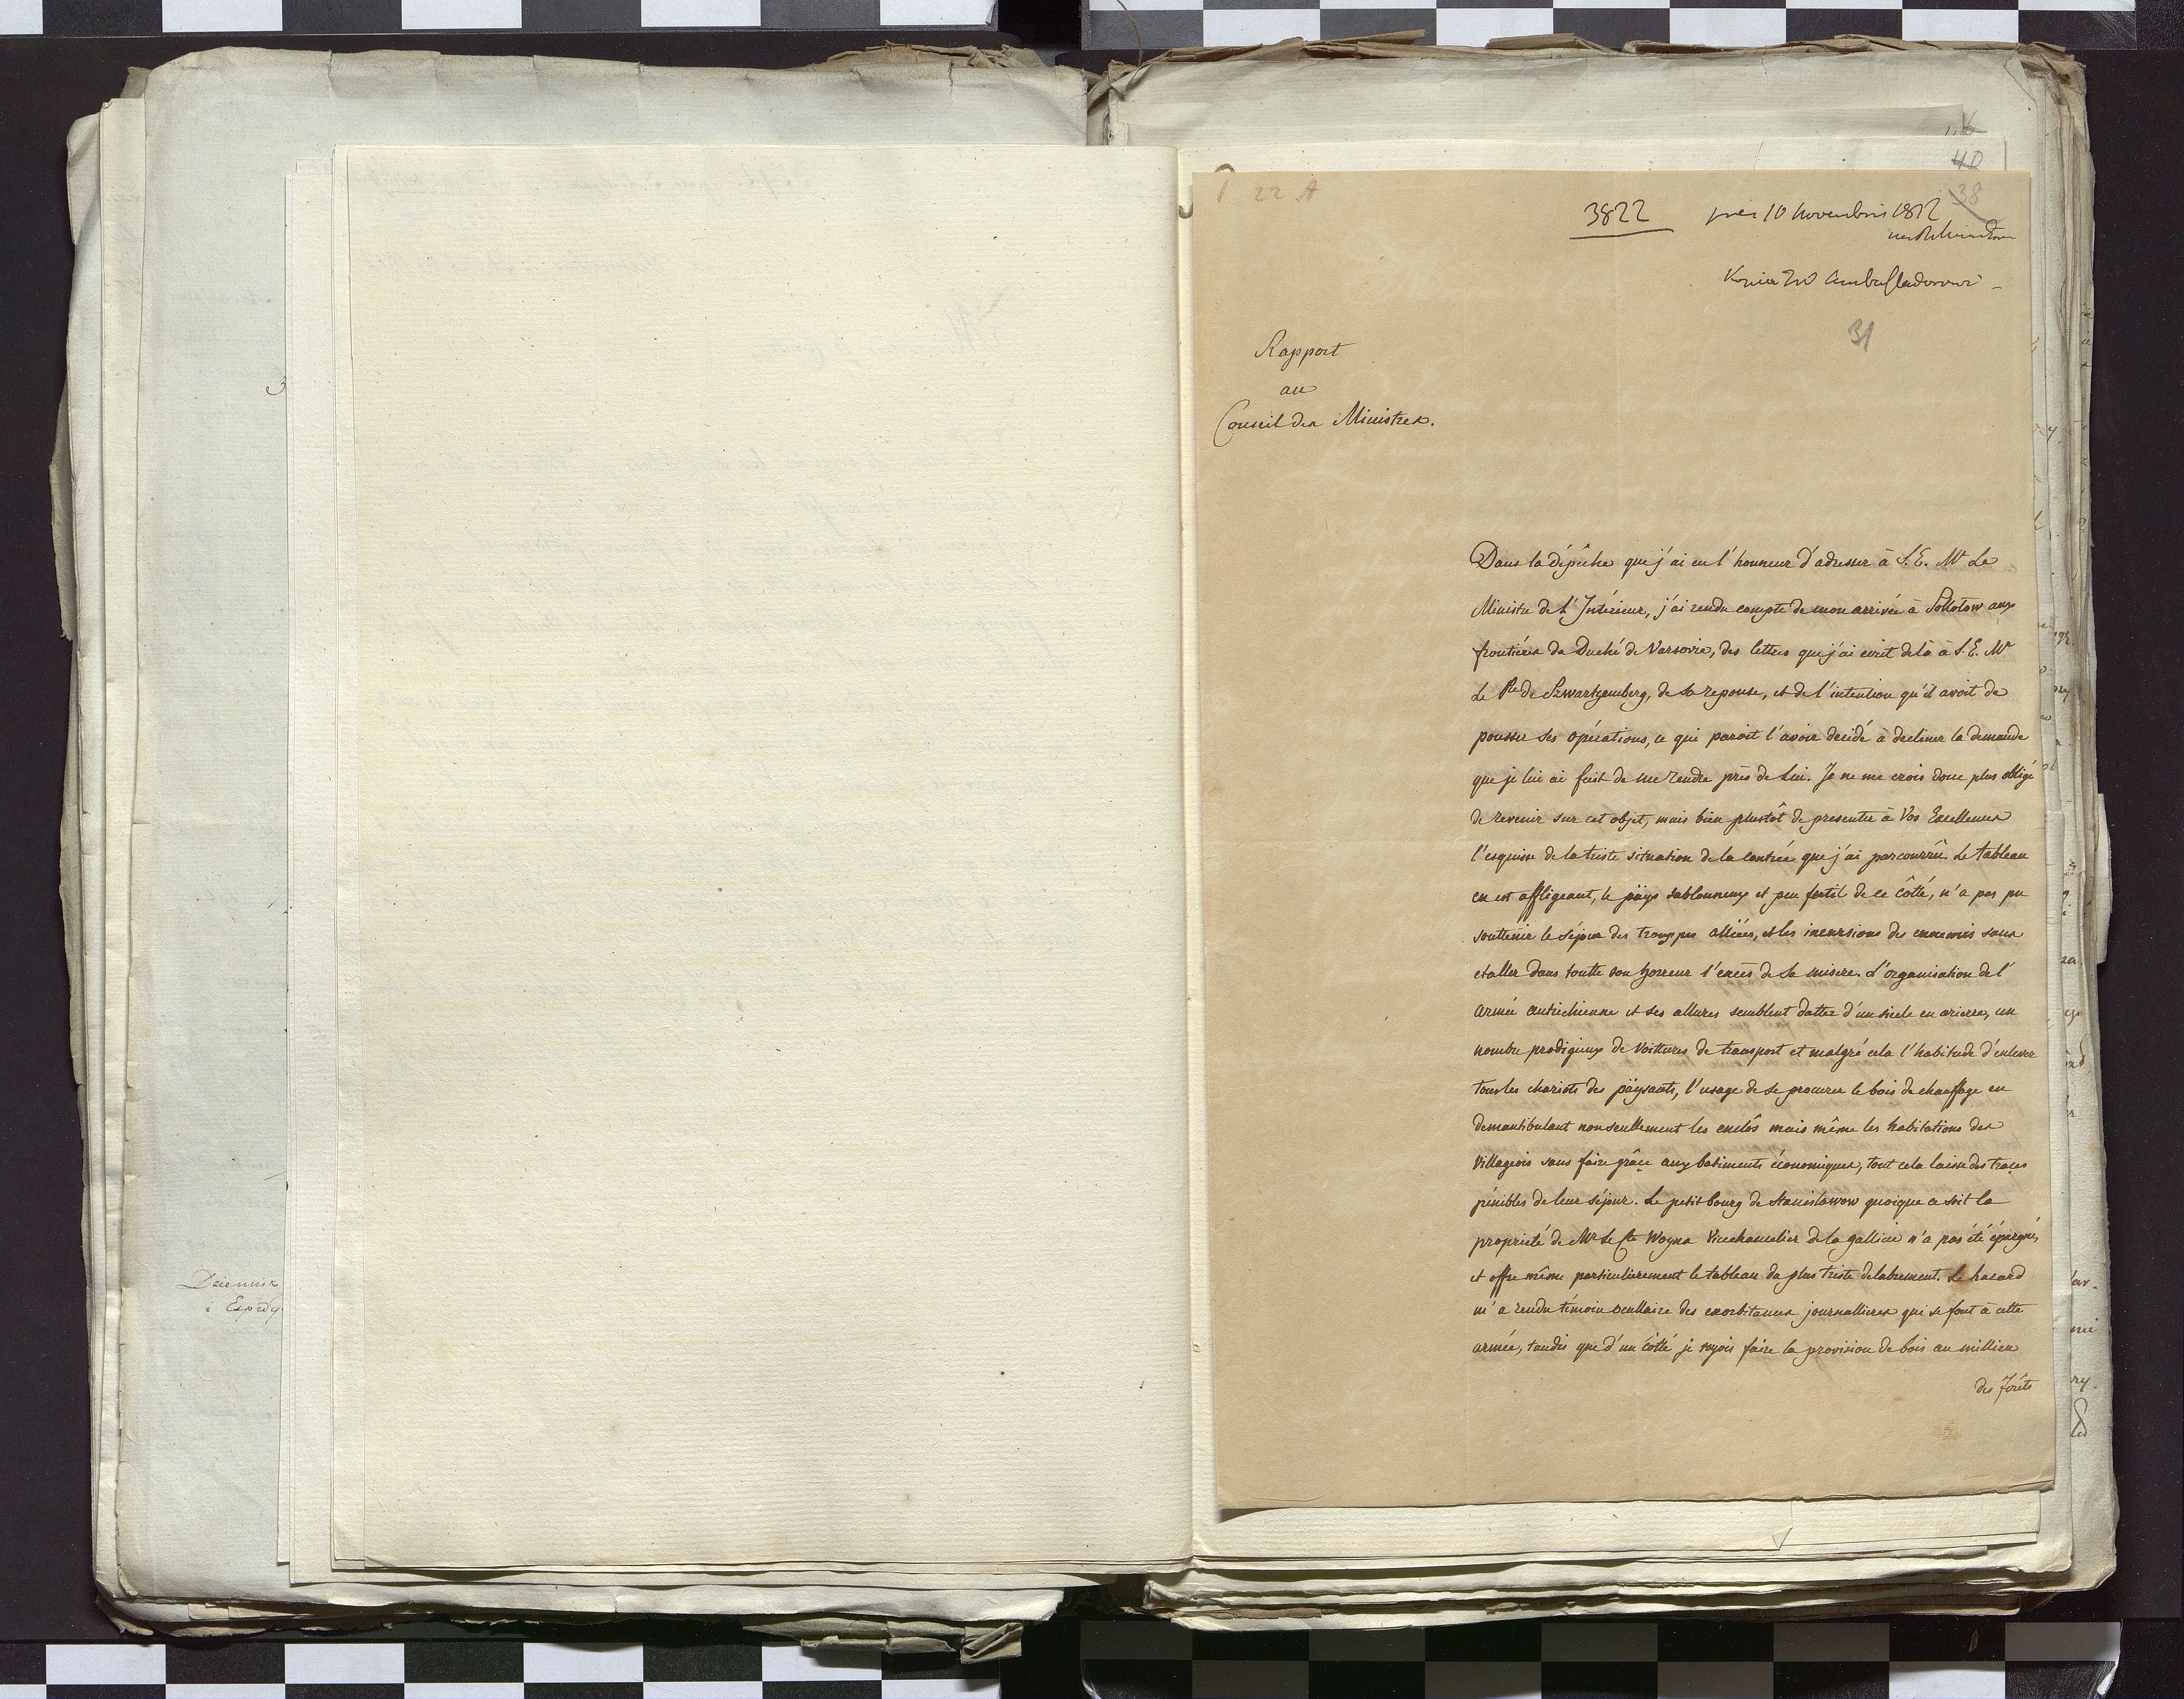 22 A
40
38
3822 pres 10 Novembris 1812
31
Rapport
au
Conseil des Ministres.
Dans la dépêche que j'ai eu l'honneur d'adresser à S. E. Mr Le
Ministre de L'Intérieur, j'ai rendu compte de mon arrivée à Sokolow aux
frontières du Duché de Varsovie, des lettres que j'ai ecrit delà à S. E. Mr
Le Pce de Szwartzemberg, de sa reponse, et de l'intention qu'il avoit de
pousser ses opérations, ce qui paroit l'avoir decidé à decliner la demande
que je lui ai fait de me rendre près de Lui. Je ne me crois donc plus obligé
de revenir sur cet objet, mais bien plustôt de presenter à Vos Excellences
l'esquisse de la triste situation de la contrée que j'ai parcourrûe. Le tableau
en est affligeant, le päys sablonneux et peu fertil de ce côtté, n'a pas pu
souttenir le séjour des trouppes alliées, et les incursions des ennemis sans
etaller dans toutte son horreur l'excès de sa misere. L'organisation de l'
armée autrichienne et ses allures semblent datter d'un siecle en arierre, un
nombre prodigieux de voittures de transport et malgré cela l'habitude d'enlever
tous les chariots des päysants, l'usage de se procurer le bois de chauffage en
demantibulant nonseullement les enclôs mais même les habitations des
Villageois sans faire grâce aux batiments économiques, tout cela laisse des traces
pénibles de leur séjour. Le petit bourg de Stanislawow quoique ce soit la
proprieté de Mr Le Cte Woyna Vicechancelier de la gallicie n'a pas été épargné,
et offre même particulierement le tableau du plus triste delabrement. Le hasard
m'a rendu témoin ocullaire des exorbitances journallieres qui se font à cette
armée, tandis que d'un côtté je voyois faire la provision de bois au millieu
des forêts
Dziennik
i Exped